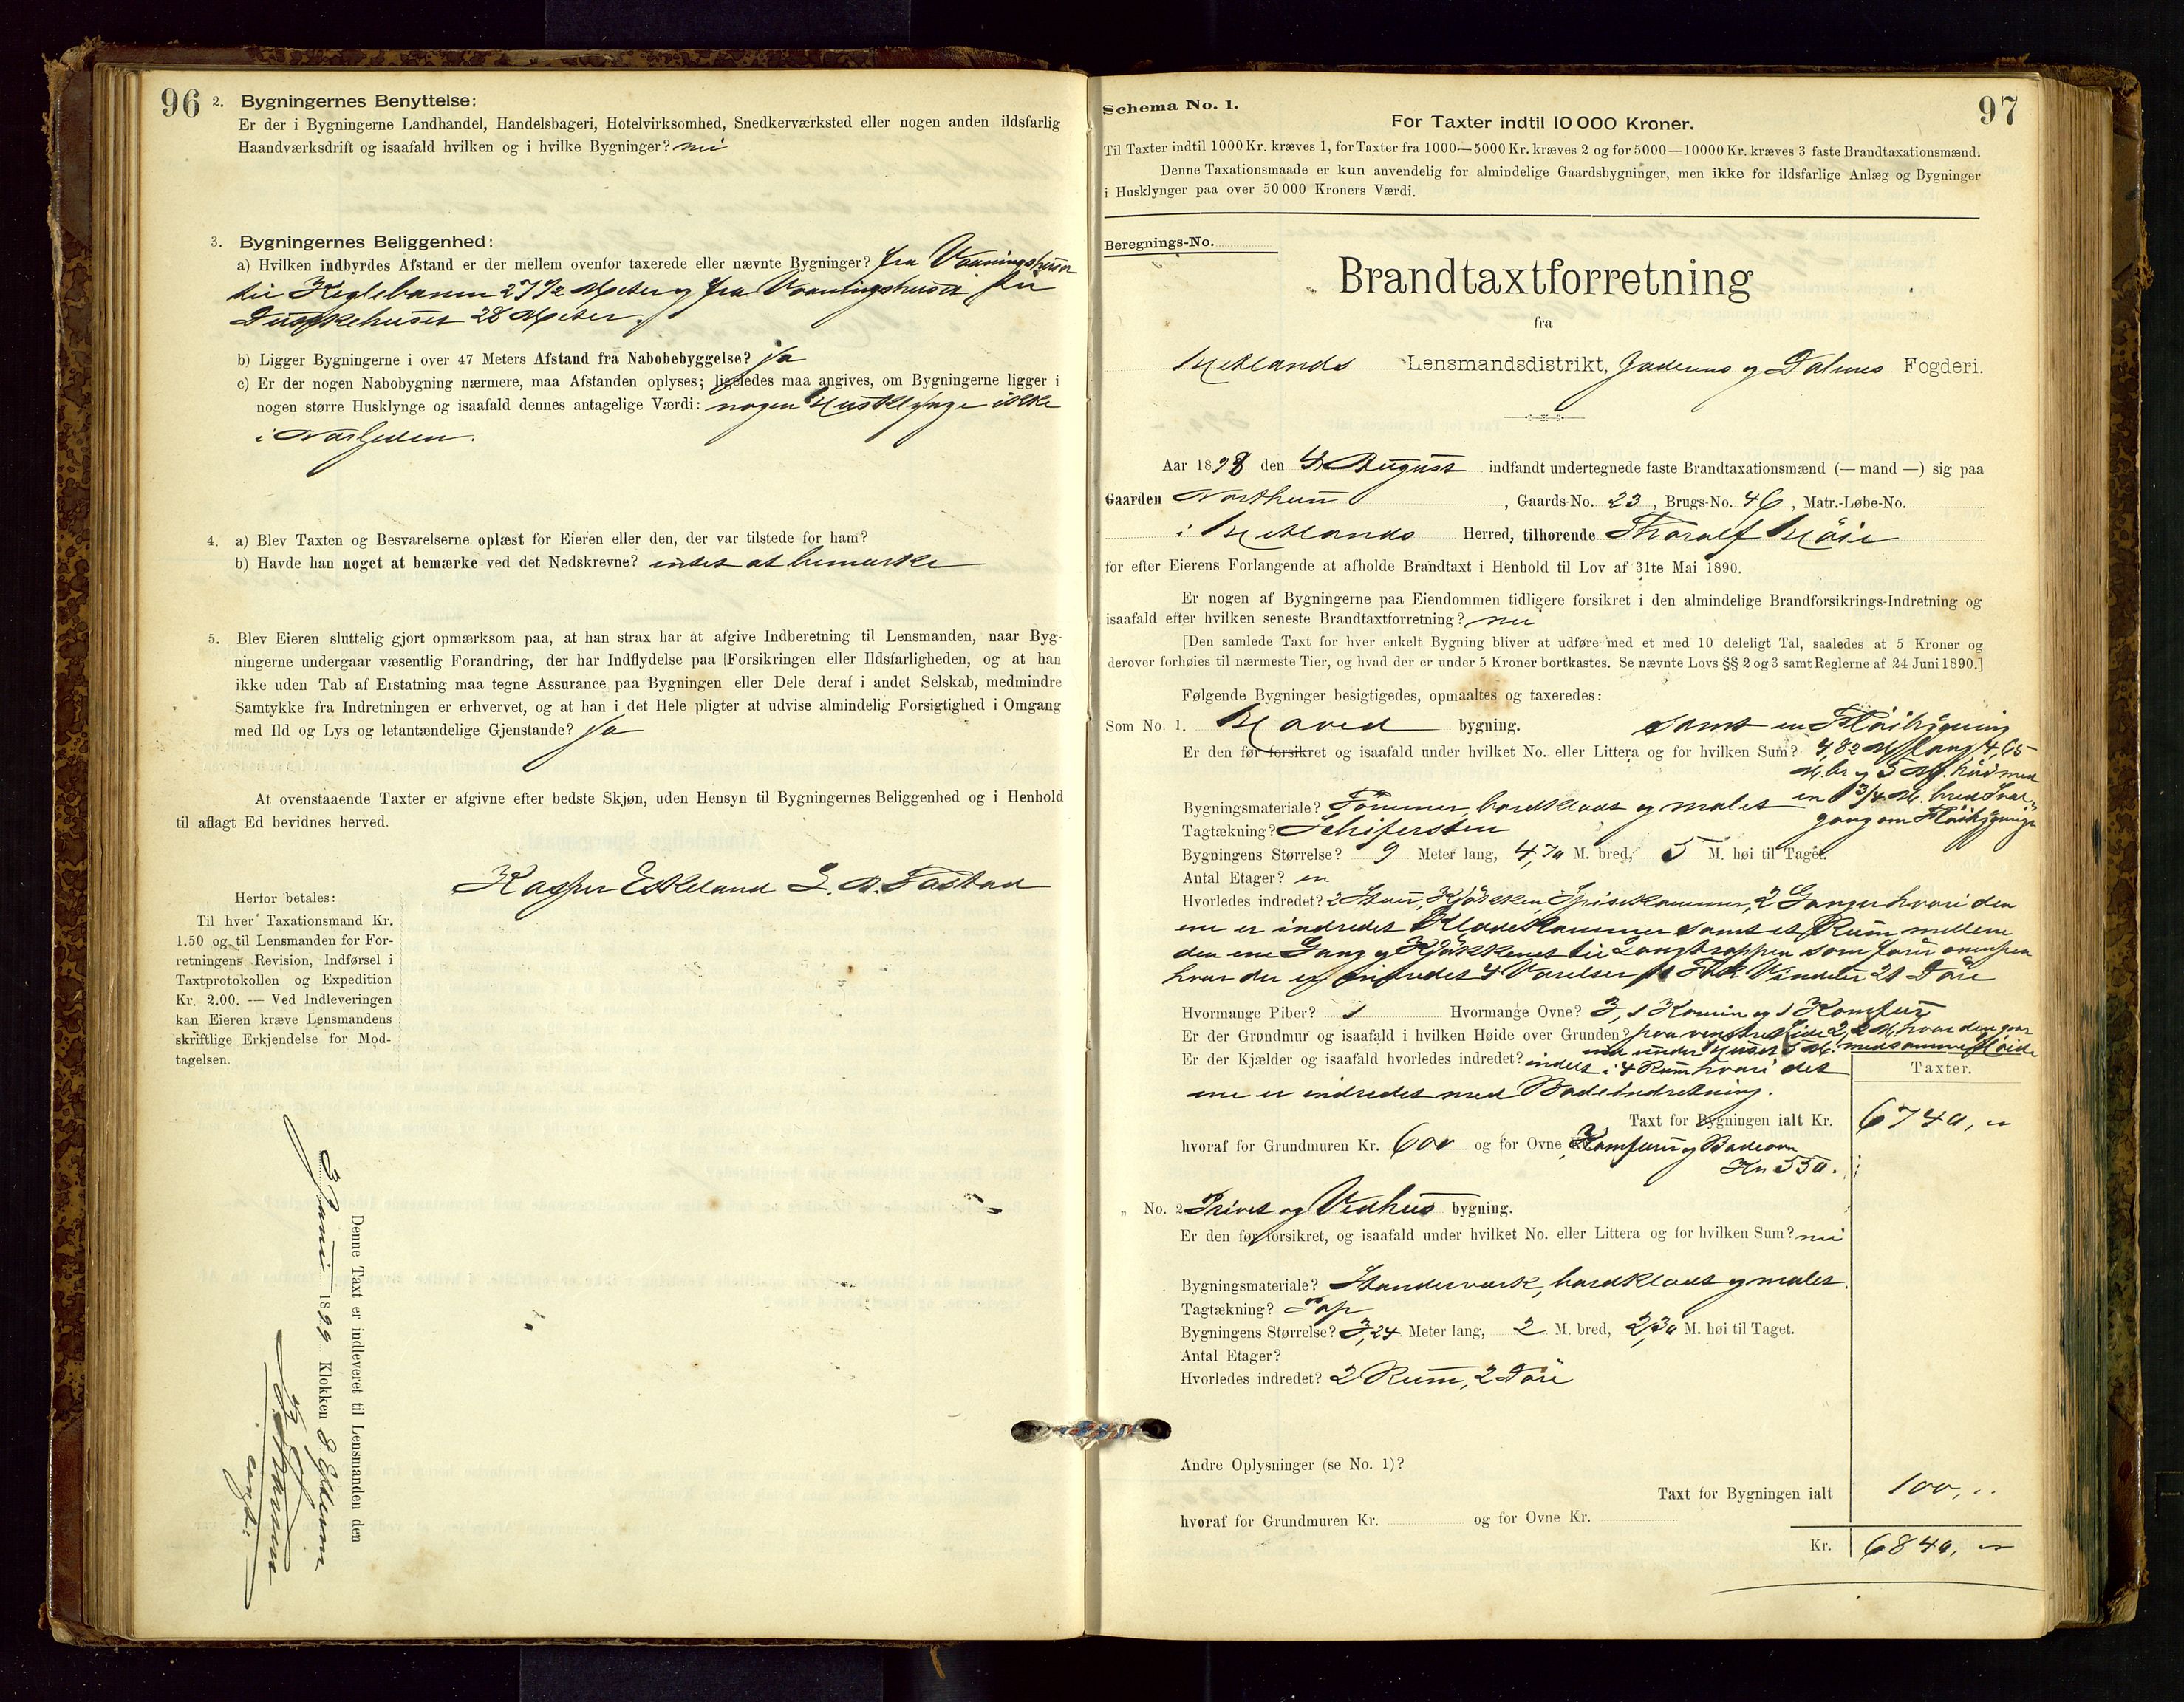 96
2. Bygningernes Benyttelse:
Er der i Bygningerne Landhandel, Handelsbageri, Hotelvirksomhed, Snedkerværksted eller nogen anden ildsfarlig
Haandværksdrift og isaafald hvilken og i hvilke Bygninger? nei
3. Bygningernes Beliggenhed:
a) Hvilken indbyrdes Afstand er der mellem ovenfor taxerede eller nævnte Bygninger? fra Vaaningshuset
til Keglebanen 27 1/2 Meter og fra Vaaningshuset til
28 Meter.
b) Ligger Bygningerne i over 47 Meters Afstand fra Nabobebyggelse? ja
c) Er der nogen Nabobygning nærmere, maa Afstanden oplyses; ligeledes maa angives, om Bygningerne ligger i
nogen større Husklynge og isaafald dennes antagelige Værdi: nogen Husklynge ikke
i Nærheden.
4. a) Blev Taxten og Besvarelserne oplæst for Eieren eller den, der var tilstede for ham?
b) Havde han noget at bemærke ved det Nedskrevne? intet at bemærke
5. Blev Eieren sluttelig gjort opmærksom paa, at han strax har at afgive Indberetning til Lensmanden, naar Byg-
ningerne undergaar væsentlig Forandring, der har Indflydelse paa Forsikringen eller Ildsfarligheden, og at han
ikke uden Tab af Erstatning maa tegne Assurance paa Bygningen eller Dele deraf i andet Selskab, medmindre
Samtykke fra Indretningen er erhvervet, og at han i det Hele pligter at udvise almindelig Forsigtighed i Omgang
med Ild og Lys og letantændelige Gjenstande? ja
At ovenstaaende Taxter er afgivne efter bedste Skjøn, uden Hensyn til Bygningernes Beliggenhed og i Henhold
til aflagt Ed bevidnes herved.
Kasper Eskeland L. A. Tastad
Herfor betales:
Til hver Taxationsmand Kr.
1.50 og til Lensmanden for For-
retningens Revision, Indførsel i
Taxtprotokollen og Expedition
Kr. 2.00. — Ved Indleveringen
kan Eieren kræve Lensmandens
skriftlige Erkjendelse for Mod-
tagelsen.
Denne Taxt er indleveret til Lensmanden den
3 Juni 1899 Klokken 8 Efterm
97
Schema No. 1.
For Taxter indtil 10 000 Kroner.
Til Taxter indtil 1000 Kr. kræves 1, for Taxter fra 1000—5000 Kr. kræves 2 og for 5000—10000 Kr. kræves 3 faste Brandtaxationsmænd.
Denne Taxationsmaade er kun anvendelig for almindelige Gaardsbygninger, men ikke for ildsfarlige Anlæg og Bygninger
i Husklynger paa over 50 000 Kroners Værdi.
Beregnings-No.
Brandtaxtforretning
fra
Hetlands Lensmandsdistrikt, Jæderens og Dalernes Fogderi.
Aar 1898 den 4 August indfandt undertegnede faste Brandtaxationsmænd (— mand —) sig paa
Gaarden , Gaards-No. 23, Brugs-No. 46, Matr.-Løbe-No.
i Hetlands Herred, tilhørende Tharalf Høie
for efter Eierens Forlangende at afholde Brandtaxt i Henhold til Lov af 31te Mai 1890.
Er nogen af Bygningerne paa Eiendommen tidligere forsikret i den almindelige Brandforsikrings-Indretning og
isaafald efter hvilken seneste Brandtaxtforretning? nei
[Den samlede Taxt for hver enkelt Bygning bliver at udføre med et med 10 deleligt Tal, saaledes at 5 Kroner og
derover forhøies til nærmeste Tier, og hvad der er under 5 Kroner bortkastes. Se nævnte Lovs §§ 2 og 3 samt Reglerne af 24 Juni 1890.]
Følgende Bygninger besigtigedes, opmaaltes og taxeredes:
Som No. 1. Hoved bygning. samt en Fløibygning
Er den før forsikret og isaafald under hvilket No. eller Littera og for hvilken Sum? 4,82 M lang 4,65
M. br og 5 M. høi med
en 1 3/4 M. bred Sval-
gang om Fløibygningen
Bygningsmateriale? Tømmer, bordklædt og malet
Tagtækning? Schifersten
Bygningens Størrelse? 9 Meter lang, 4,70 M. bred, 5 M. høi til Taget.
Antal Etager? en
Hvorledes indredet? 2 Stuer, Kjøkken, Spisekammer, 2 Ganger hvori den
ene er indredet Klædekammer samt et Rum mellem
den ene Gang og Kjøkkenet til Langtrappen som fører ovenpaa
hvor der er indredet 4 Værelser Vinduer 21 Døre
Hvormange Piber? 1 Hvormange Ovne? 3, 1 Kamin og 1 Komfur
Er der Grundmur og isaafald i hvilken Høide over Grunden? paa venstre Side 2,2 M. hvor den gaar
ind under Huset 5 M. med samme Høide
Er der Kjælder og isaafald hvorledes indredet? indelt i 4 Rum hvori det
ene er indredet med Badeindretning.
Taxter.
Taxt for Bygningen ialt Kr. 6740, "
hvoraf for Grundmuren Kr. 600 og for Ovne Kr. Komfur og Badeovn
Kr 550.
" No. 2 Privet og Vedhus bygning.
Er den før forsikret, og isaafald under hvilket No. eller Littera og for hvilken Sum? nei
Bygningsmateriale? Standerværk, bordklædt og malet.
Tagtækning? Pap
Bygningens Størrelse? 3,24 Meter lang, 2 M. bred, 2,30 M. høi til Taget.
Antal Etager?
Hvorledes indredet? 2 Rum, 2 Døre
Andre Oplysninger (se No. 1)?
Taxt for Bygningen ialt 100, "
hvoraf for Grundmuren Kr. og for Ovne Kr.
Kr. 6840, "